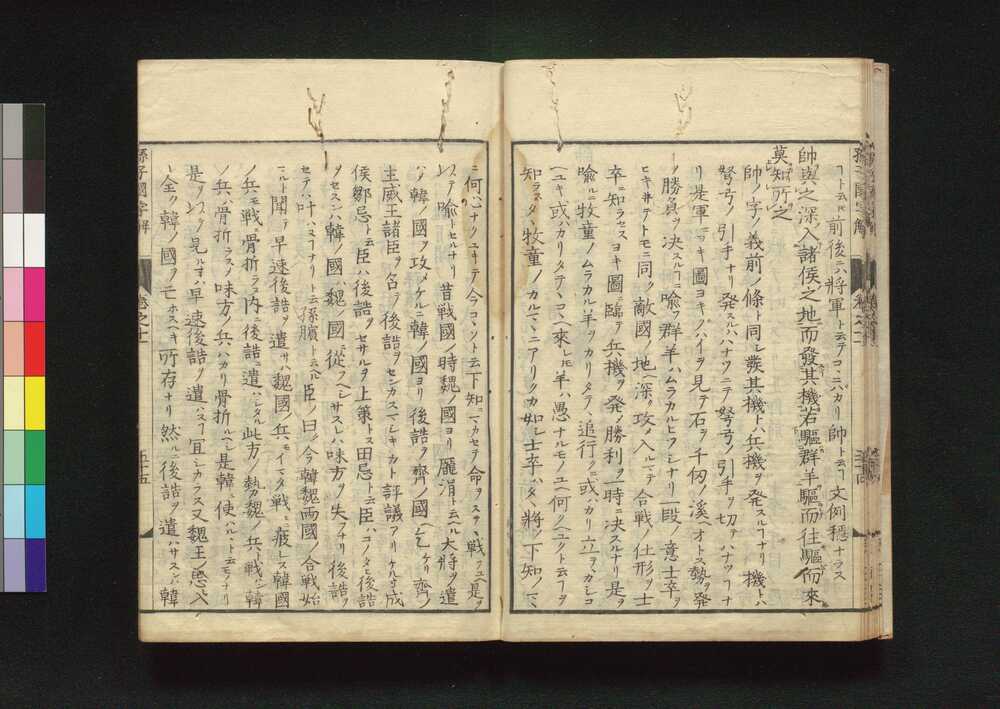 フト云ヘル前後ニハ將軍ト云テコヽニハカリ帥ト云フ文例穏ナラス
帥與之深入諸侯之地而發其機若驅群羊驅而往驅而來
莫知所之
帥ノ字ノ義前ノ條ト同シ發其機トハ兵機ヲ発スルフナリ機トハ
弩弓ノ引手ナリ発スルハハナツフニテ弩弓ノ引手ヲ切テハナツフナ
リ是軍ニヨキ圖ヨキノハイヲ見テ石ヲ千仭ノ溪ヘオトス勢ヲ発
シ勝負ヲ決スルフニ喩フ群羊ハムラカルヒツシナリ一段ノ意士卒ヲ
ヒキ井テトモニ同ク敵國ノ地ヘ深ク攻メ入ルマテ合戰ノ仕形ヲ士
卒ニ知ラセスヨキ圖ニ臨テ兵機ヲ発シ勝利ヲ一時ニ決スルナリ是ヲ
喩ルニ牧童ノムラカル羊ヲカリタテヽ追行クニ或ハカリ立テヽカシコ
ヘユキ或ハカリタテヽコヽヘ來レトモ羊ハ愚ナルモノユヘ何クヘユクト云フヲ
知ラスタヽ牧童ノカルマヽニアリク力如シ士卒ハタヽ將ノ下知ノマヽ
ニ何ハナクユキテ今コヽソト云下知ニマカセテ命ヲステヽ戰フユヘ是ヲ
以テ喩トセルナリ昔戰國ノ時魏ノ國ヨリ龐涓ト云ヘル大將ヲ遣
ハシ韓ノ國ヲ攻メケルニ韓ノ國ヨリ後詰ヲ齊ノ國ヘ乞ケリ齊ノ
主威王諸臣ヲ召テ後詰ヲセンカスマシキカト評議アリケルトキ成
侯鄒忌ト云臣ハ後詰ヲセサルヲ上策トス田忌ト云臣ハコノタヒ後詰
ヲセスンハ韓ノ國ハ魏ノ國ニ從フヘシサスレハ味方ヲ失フナリ後詰ヲ
セテハ叶ハヌフナリト云孫臏ト云ヘル臣ノ曰ク今韓魏兩國ノ合戰始
ルト聞テ早速後詰ヲ遣サハ魏國ノ兵モイマタ戰ニ疲レス韓國
ノ兵モ戰ニ骨折ラス内ニ後詰ニ遣ハシタル此方ノ勢魏ノ兵ト戰ハン韓
ノ兵ハ骨折ラスノ味方ノ兵ハカリ骨折ルヘシ是韓ニ使ハルヽト云モノナリ
是ヲ以テ見ルトキハ早速後詰ヲ遣ハスフ冝シカラス又魏王ノ思入
ハ全ク韓ノ國ヲ亡ホスヘキ所存ナリ然ルニ後詰ヲ遣ハサスンハ韓
孫子國字解
卷之十一
五十五